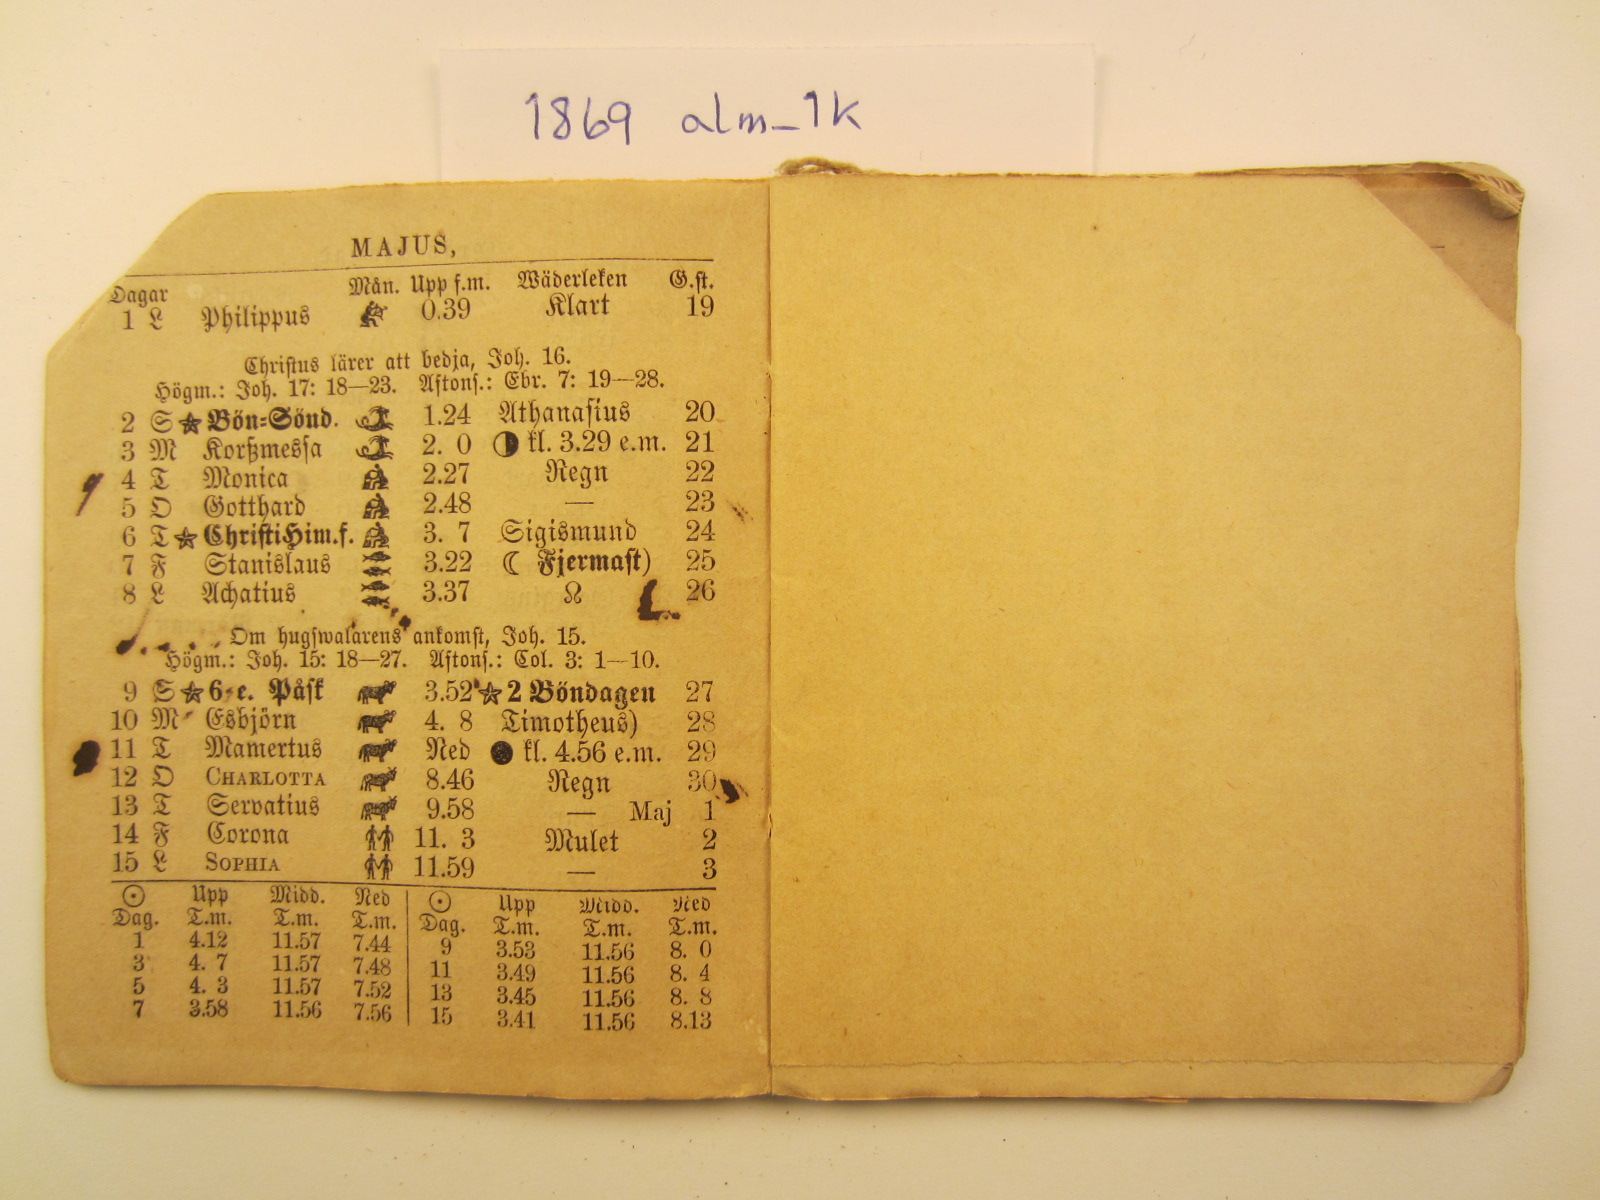 1869 alm_1k
MAJUS,
Dagar Mån. Upp f.m. Wäderleken G.st.
1 L Philippus 0.39 Klart 19
Christus lärer att bedja, Joh. 16.
Högm.: Joh. 17: 18—23. Aftons.: Ebr. 7: 19—28.
2 S ★ Bön-Sönd. 1.24 Athanasius 20
3 M Korßmessa 2. 0 ◑ kl. 3.29 e.m. 21
4 T Monica 2.27 Regn 22
5 O Gotthard 2.48 — 23
6 T ★ Christi Him.f. 3. 7 Sigismund 24
7 F Stanislaus 3.22 ☾ Fjermast) 25
8 L Achatius 3.37 ☊ 26
Om hugswalarens ankomst, Joh. 15.
Högm.: Joh. 15: 18—27. Aftons.: Col. 3: 1—10.
9 S ★ 6 e. Påsk 3.52 ★ 2 Böndagen 27
10 M Esbjörn 4. 8 Timotheus) 28
11 T Mamertus Ned ● kl. 4.56 e.m. 29
12 O CHARLOTTA 8.46 Regn 30
13 T Servatius 9.58 — Maj 1
14 F Corona 11. 3 Mulet 2
15 L SOPHIA 11.59 — 3
☉ Upp Midd. Ned ☉ Upp Midd. Ned
Dag. T.m. T.m. T.m. Dag. T.m. T.m. T.m.
1 4.12 11.57 7.44 9 3.53 11.56 8. 0
3 4. 7 11.57 7.48 11 3.49 11.56 8. 4
5 4. 3 11.57 7.52 13 3.45 11.56 8. 8
7 3.58 11.56 7.56 15 3.41 11.56 8.13